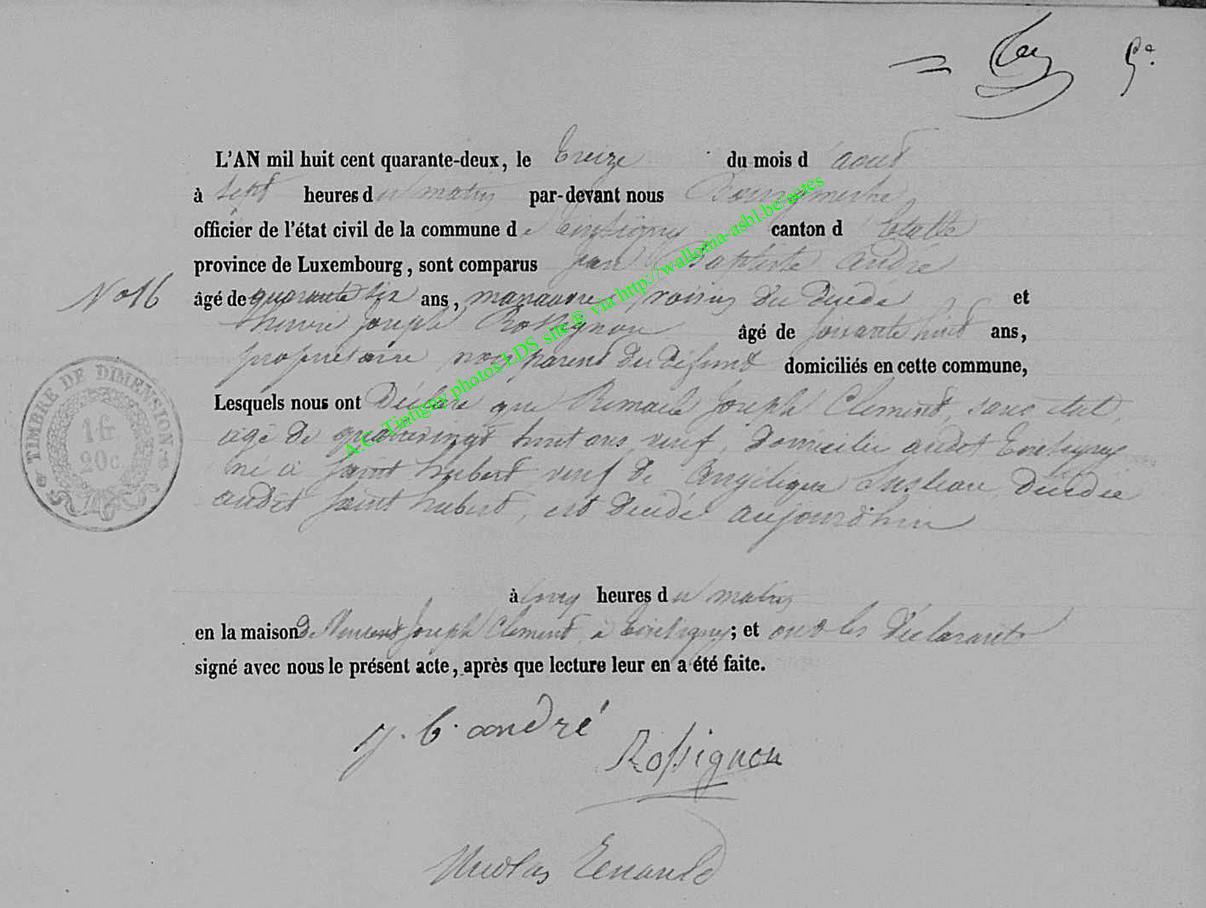 5e.
L'AN mil huit cent quarante-deux, le treize du mois d'aout
à sept heures du matin par-devant nous Bourgmestre,
officier de l'état civil de la commune de Tintigny canton d'Etalle
province de Luxembourg, sont comparus Jean Baptiste André
No 16
âgé de quarante six ans, manœuvre, voisin du décédé et
Joseph Rossignon âgé de soixante huit ans,
propriétaire non parent du défunt domiciliés en cette commune,
Lesquels nous ont déclaré que Remacle Joseph Clement, sans état
agé de quatrevingt huit ans, veuf, domicilié audit Tintigny
né à Saint hubert veuf de Angelique décédée
audit Saint hubert, est décédé aujourdhui
à cinq heures du matin
en la maison de Joseph Clement à Tintigny; et ont les déclarants
signé avec nous le présent acte, après que lecture leur en a été faite.
TIMBRE DE DIMENSION
16
20c.
j. b. andré
Rossignon
Nicolas
A.C. Tintigny photos LDS site © via http://wallonia-asbl.be/actes